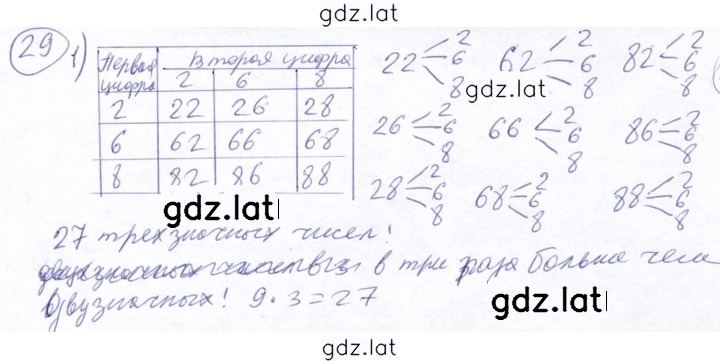 gdz.lat
29 1)
Первая цифра | Вторая цифра
2 6 8
2 22 26 28
6 62 66 68
8 82 86 88
22 2 6 8
62 2 6 8
82 2 6 8
26 2 6 8
66 2 6 8
86 2 6 8
28 2 6 8
68 2 6 8
88 2 6 8
gdz.lat
gdz.lat
27 трехзначных чисел!
в три раза больше чем
двузначных! 9·3=27
gdz.lat
gdz.lat